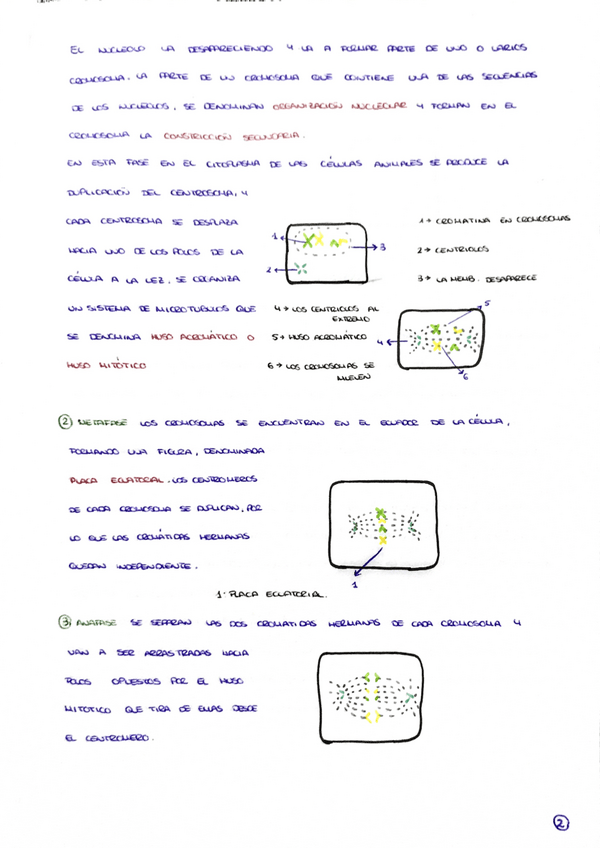 EL NUCLEOLO VA DESAPARECIENDO Y VA A FORMAR PARTE DE UNO O VARIOS
CROMOSOMA. LA PARTE DE UN CROMOSOMA QUE CONTIENE UNA DE LAS SECUENCIAS
DE LOS NUCLEOLOS, SE DENOMINAN ORGANIZACIÓN NUCLEOLAR Y FORMAN EN EL
CROMOSOMA LA CONSTRICCIÓN SECUNDARIA.
EN ESTA FASE EN EL CITOPLASMA DE LAS CÉLULAS ANIMALES SE PRODUCE LA
DUPLICACIÓN DEL CENTROSOMA, Y
CADA CENTROSOMA SE DESPLAZA
HACIA UNO DE LOS POLOS DE LA
CÉLULA A LA VEZ, SE ORGANIZA
UN SISTEMA DE MICROTUBULOS QUE
SE DENOMINA HUSO ACROMÁTICO O
HUSO MITÓTICO
1
2
3
1→ CROMATINA EN CROMOSOMAS
2→ CENTRIOLOS
3→ LA MEMB. DESAPARECE
4→ LOS CENTRIOLOS AL
EXTREMO
5→ HUSO ACROMÁTICO
6→ LOS CROMOSOMAS SE
MUEVEN
4
5
6
② METAFASE LOS CROMOSOMAS SE ENCUENTRAN EN EL ECUADOR DE LA CÉLULA,
FORMANDO UNA FIGURA, DENOMINADA
PLACA ECUATORIAL. LOS CENTROMEROS
DE CADA CROMOSOMA SE DUPLICAN, POR
LO QUE LAS CROMÁTIDAS HERMANAS
QUEDAN INDEPENDIENTE.
1
1· PLACA ECUATORIAL.
③ ANAFASE SE SEPARAN LAS DOS CROMATIDAS HERMANAS DE CADA CROMOSOMA Y
VAN A SER ARRASTRADAS HACIA
POLOS OPUESTOS POR EL HUSO
MITOTICO QUE TIRA DE ELLAS DESDE
EL CENTROMERO.
②